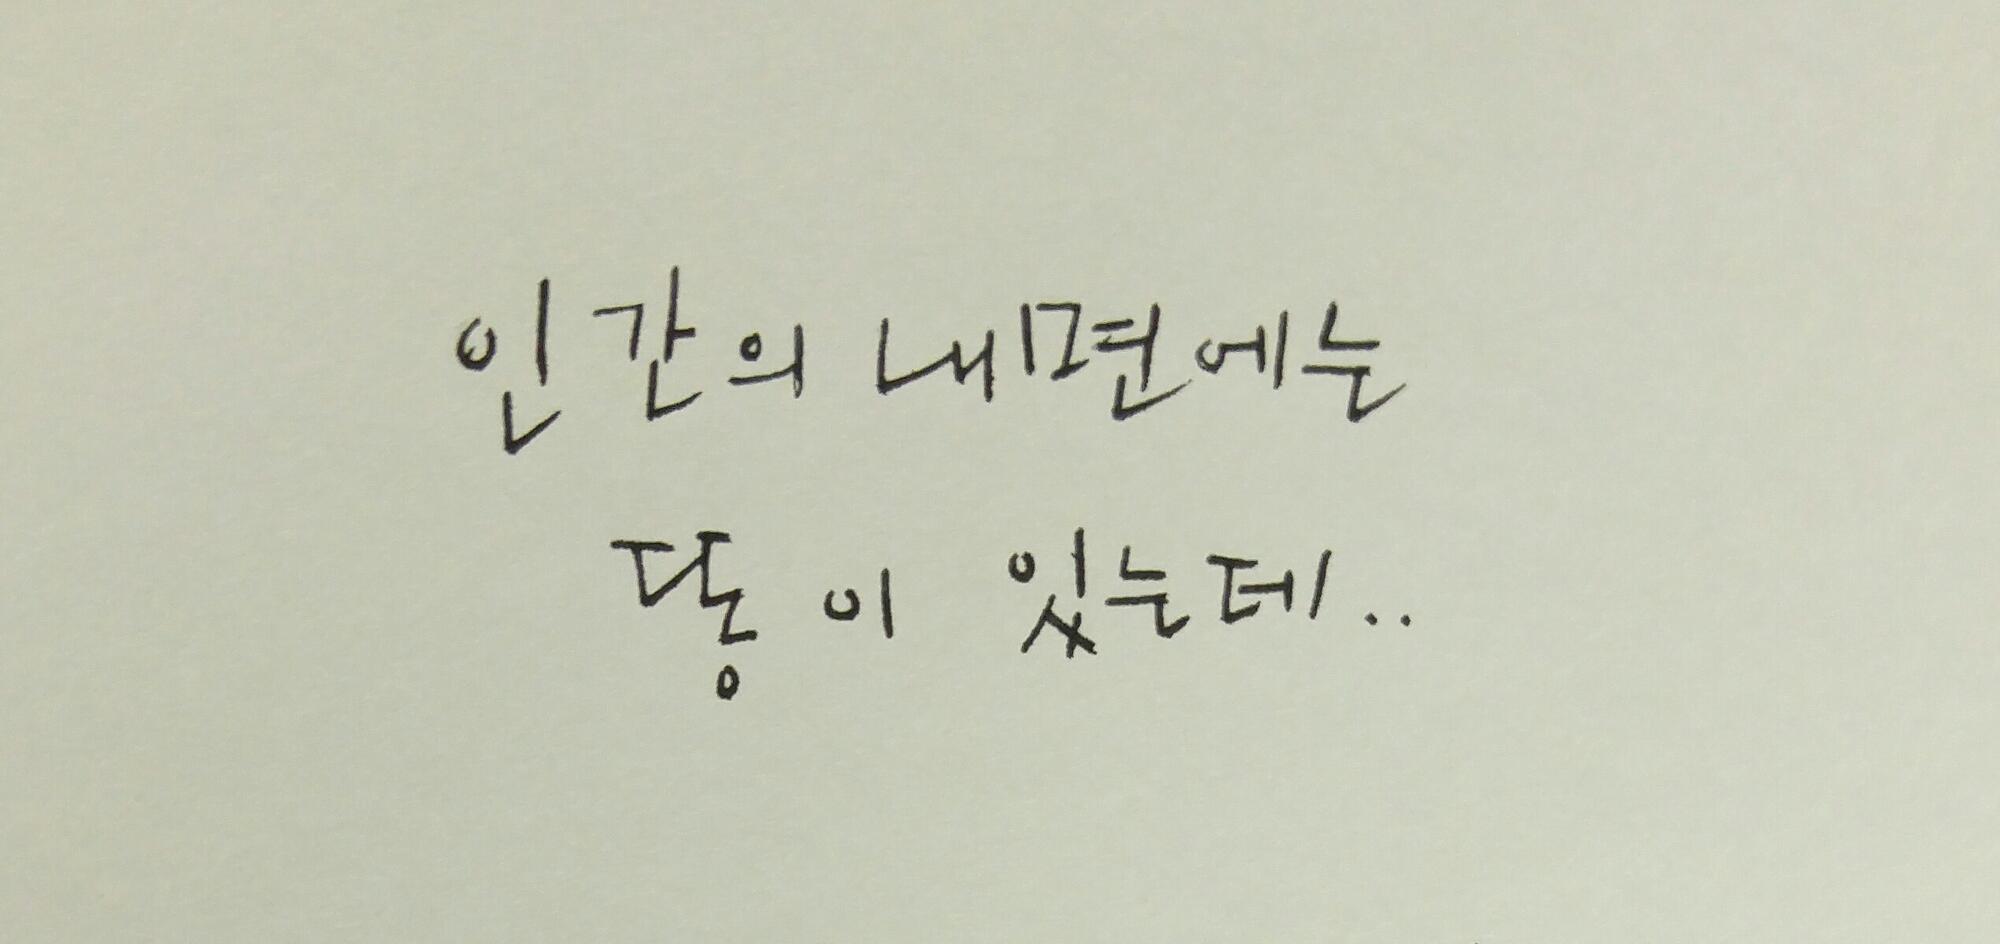 인간의 내면에는
똥이 있는데..